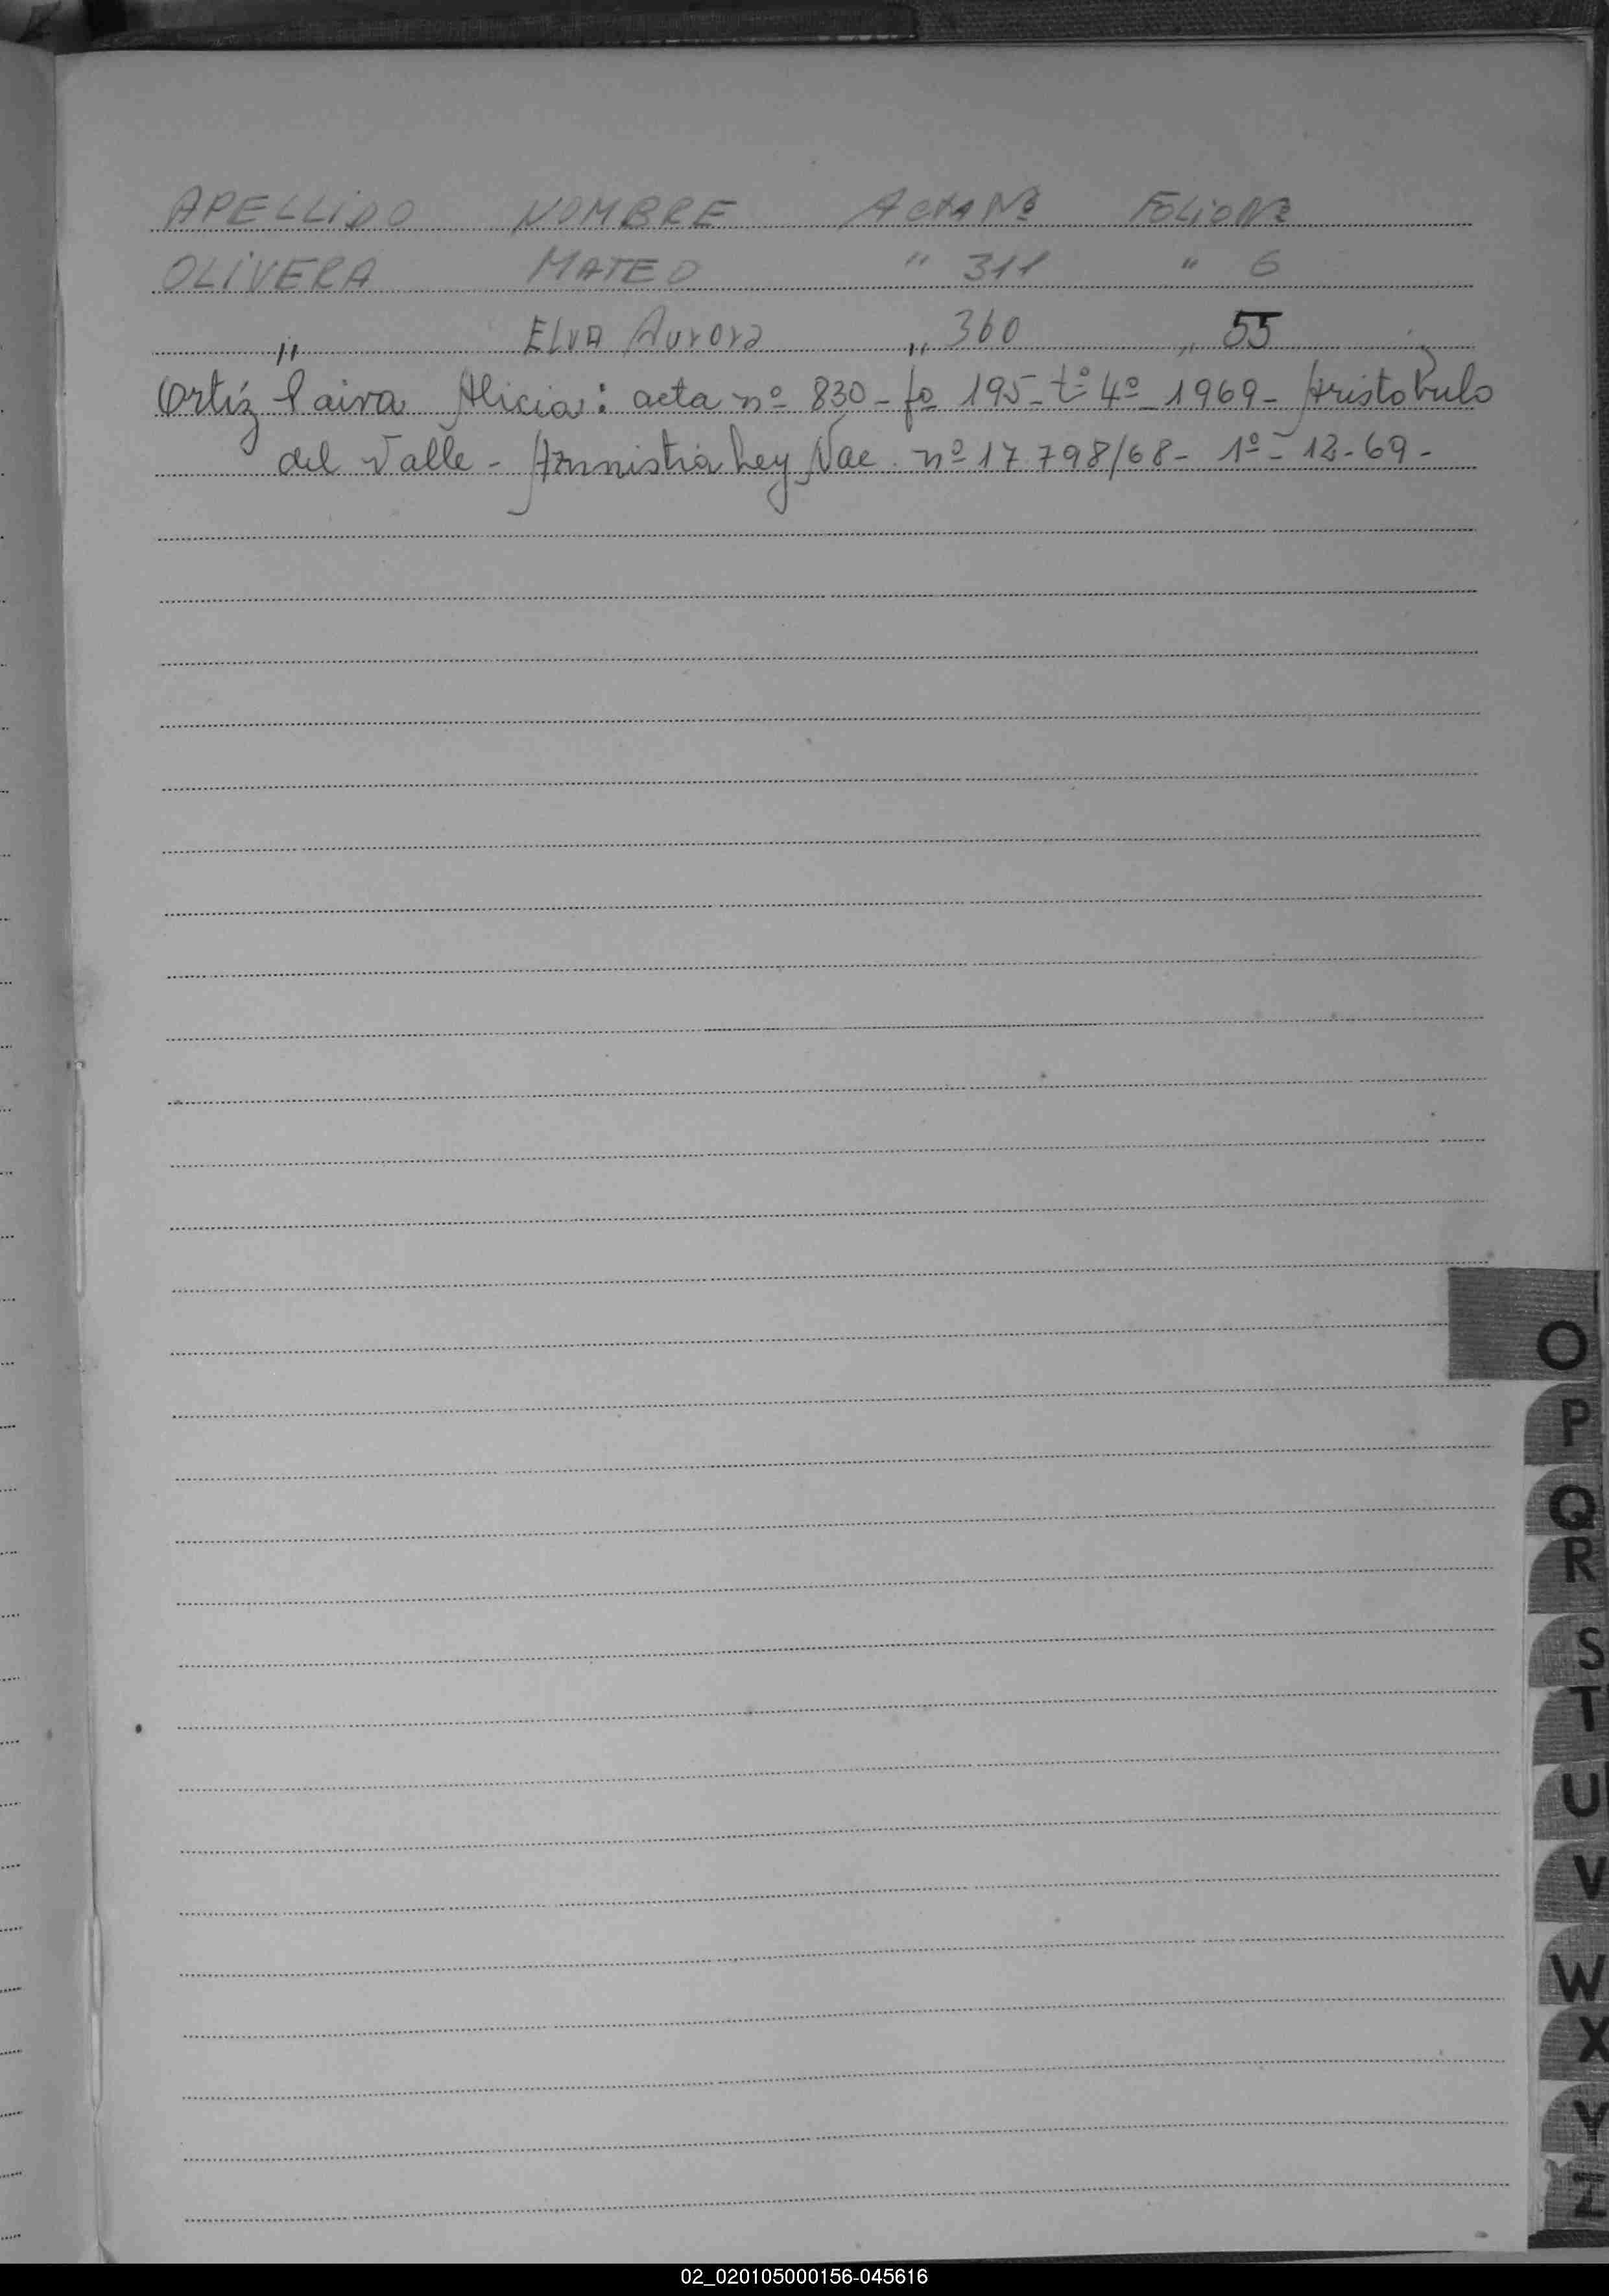 APELLIDO NOMBRE Acta Nº Folio Nº
OLIVERA MATEO " 311 " 6
" ELVA Aurora " 360 " 55
Ortíz Paiva Alicia: acta nº 830 - fº 195 - tº 4º - 1969 - Aristóbulo
del Valle - Amnistía Ley Nac. nº 17.798/68 - 1º - 12 - 69 -
O
P
Q
R
S
T
U
V
W
X
Y
Z
02_020105000156-045616